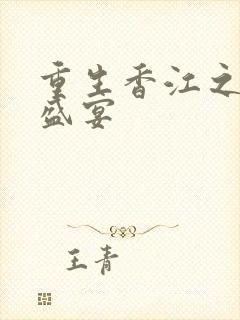 重生香江之
盛宴
王青